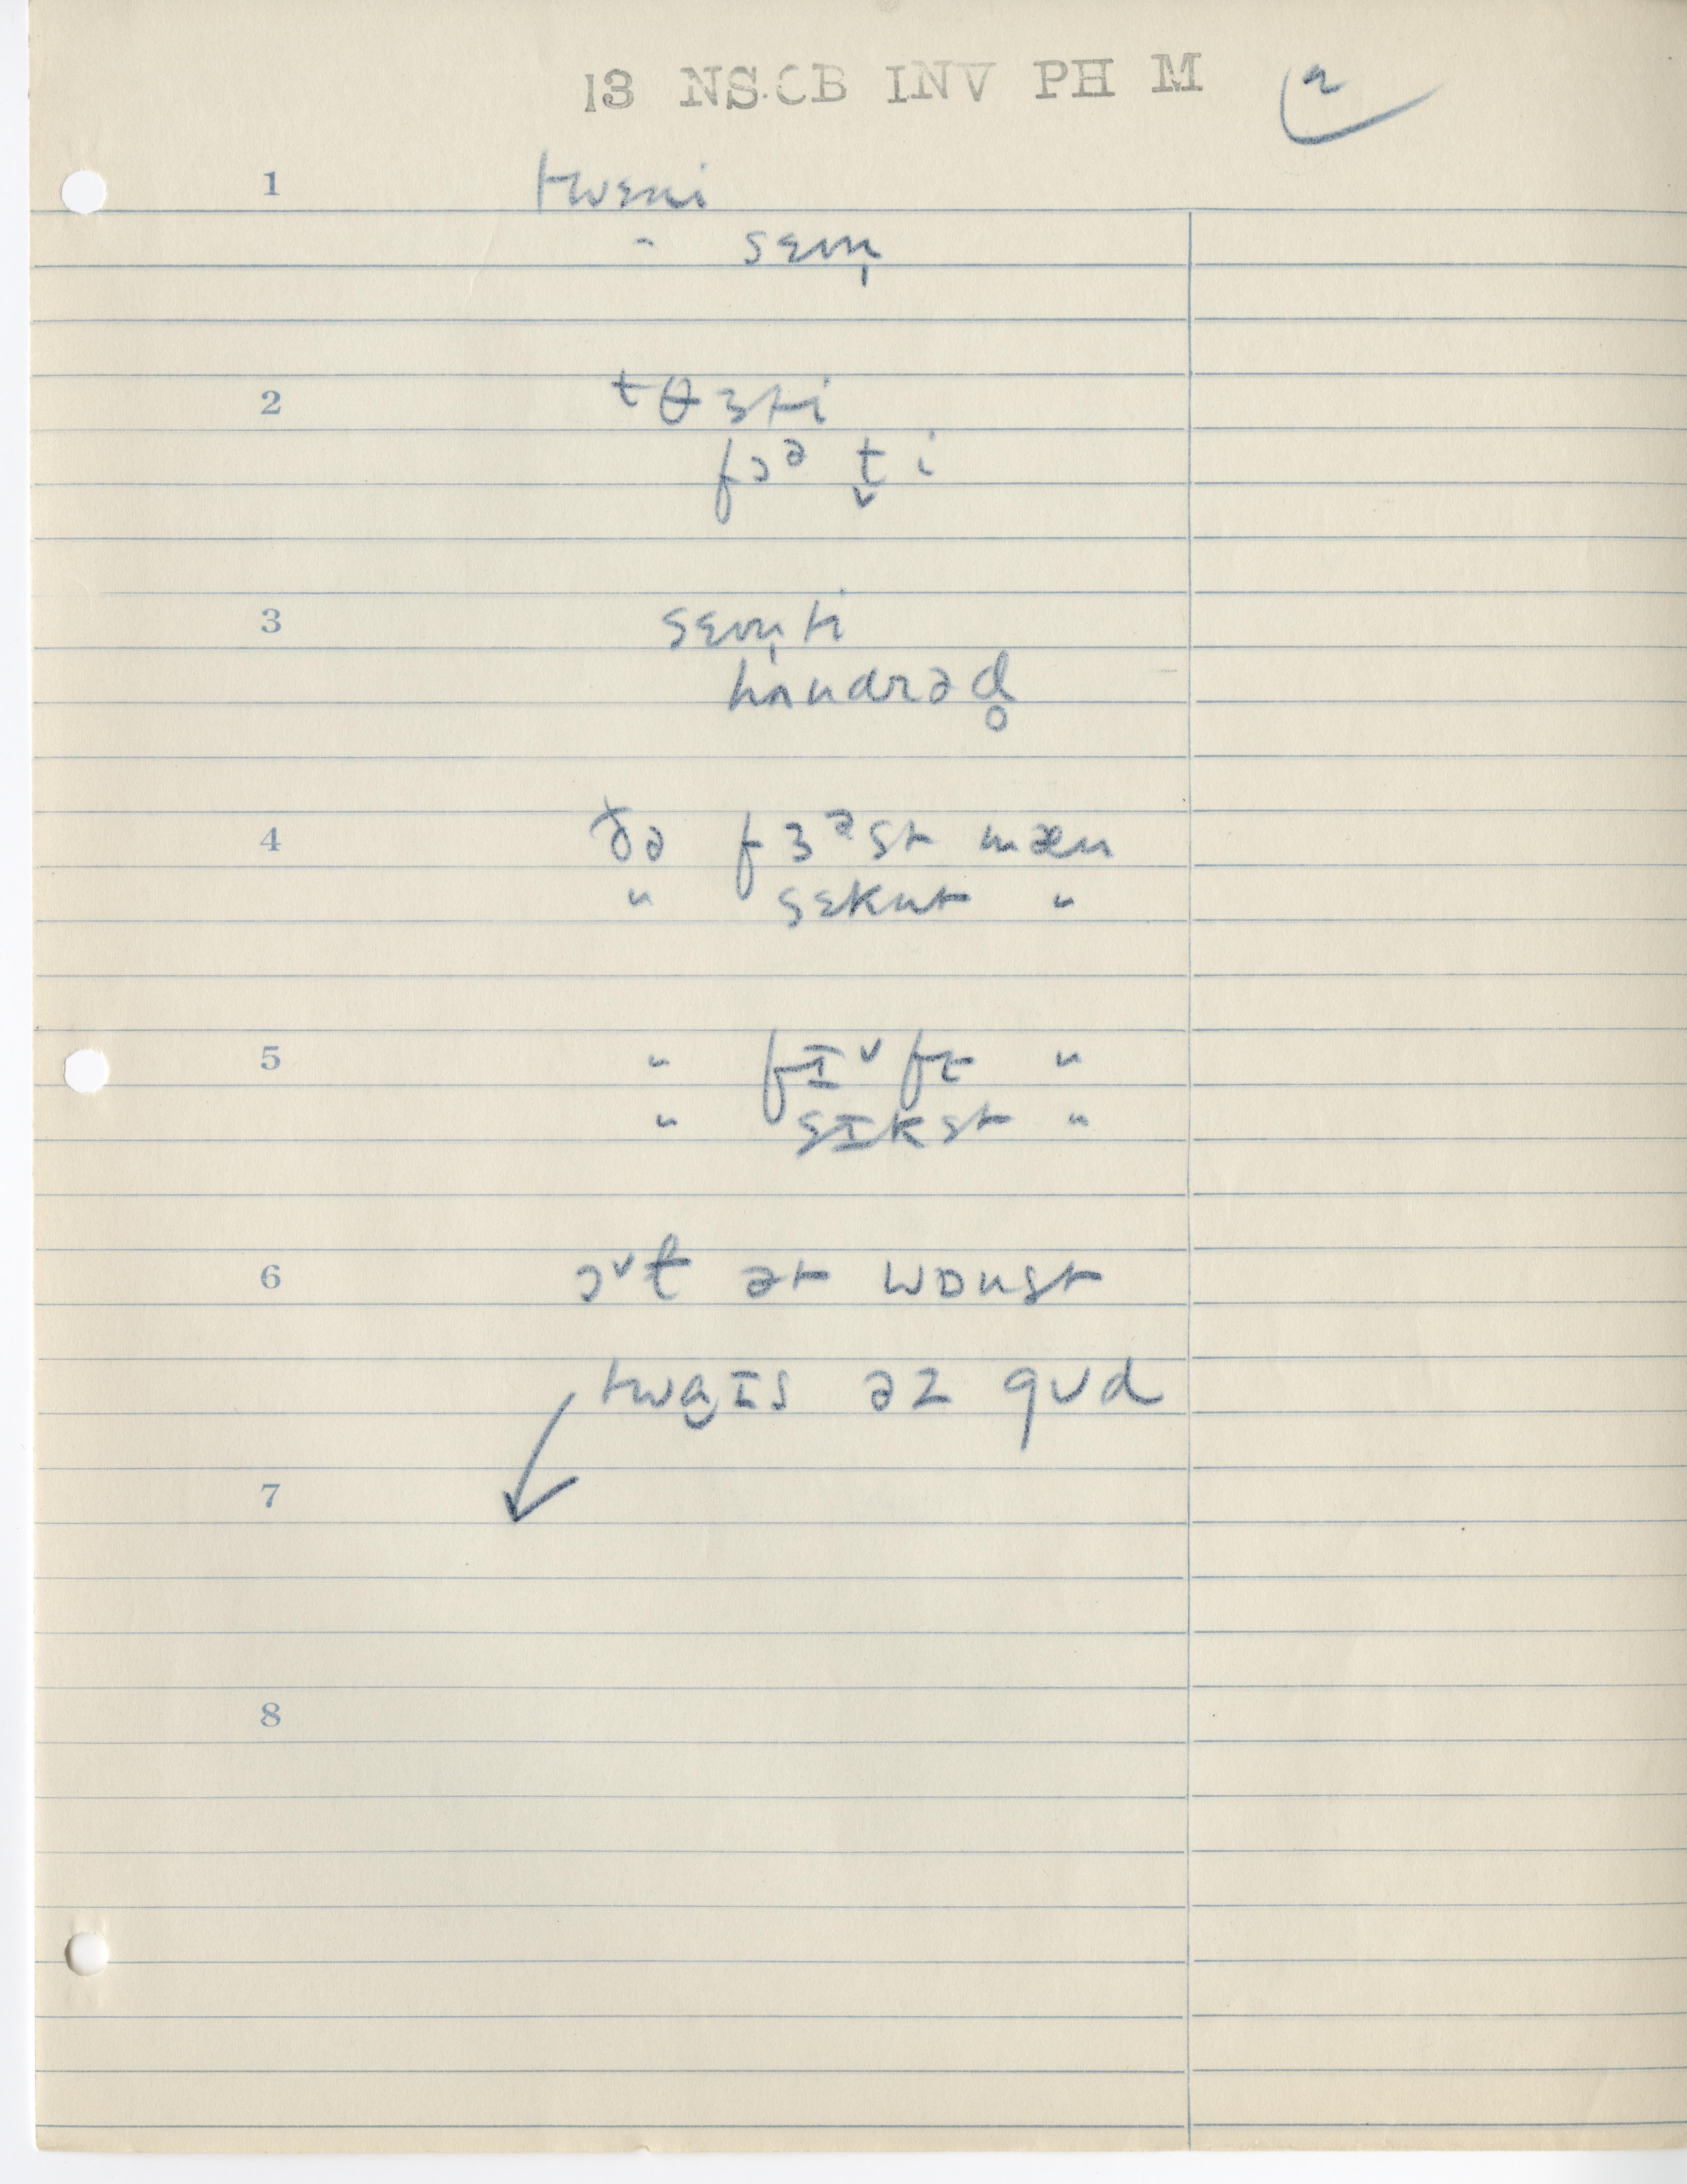 13 NS.CB INV PH M 2
1 twɛni
" sɛvn̩
2 ᵗθɜti
fɔᵊ t̬i
3 sɛvn̩ti
hʌndrəd̥
4 ðə fɜᵊst mæn
" sɛknt "
5 " fɪ˅ft "
" sɪkst "
6 ɔ˅ɫ ət wɒnst
twɑ̮ɪs əz gʊd
7
8